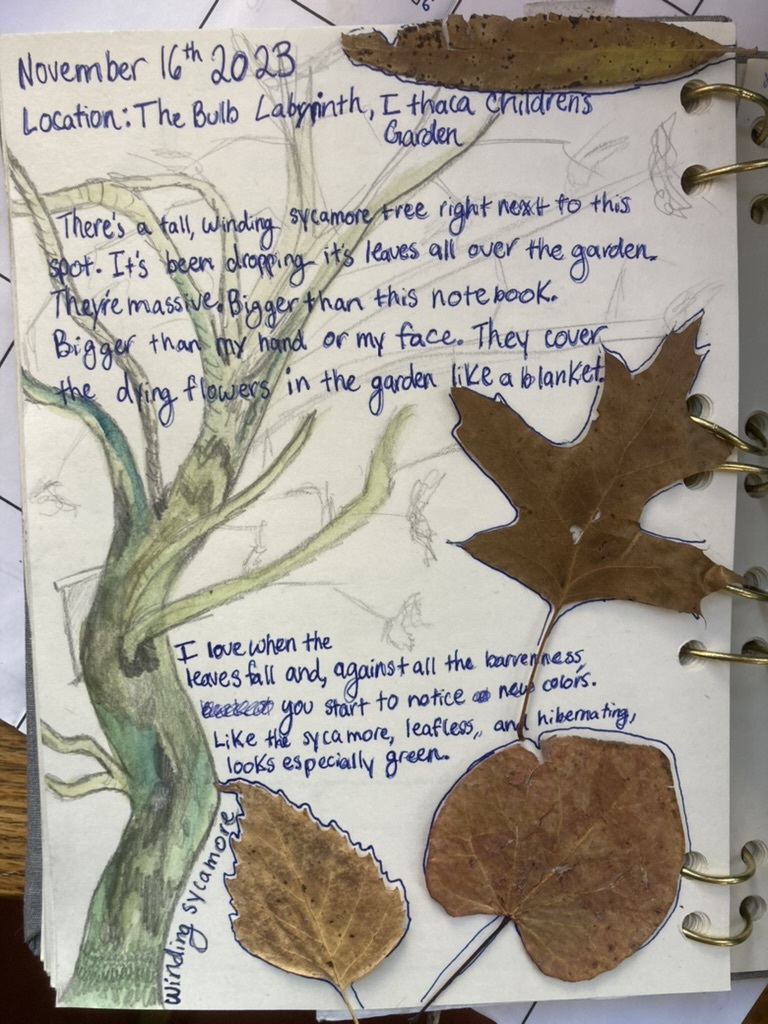 November 16th 2023
Location: The Bulb Labyrinth, Ithaca Children's
Garden
There's a tall, winding sycamore tree right next to this
spot. It's been dropping it's leaves all over the garden.
They're massive. Bigger than this notebook.
Bigger than my hand or my face. They cover
the dying flowers in the garden like a blanket.
I love when the
leaves fall and, against all the barrenness,
you start to notice new colors.
Like the sycamore, leafless, and hibernating,
looks especially green.
Winding sycamore